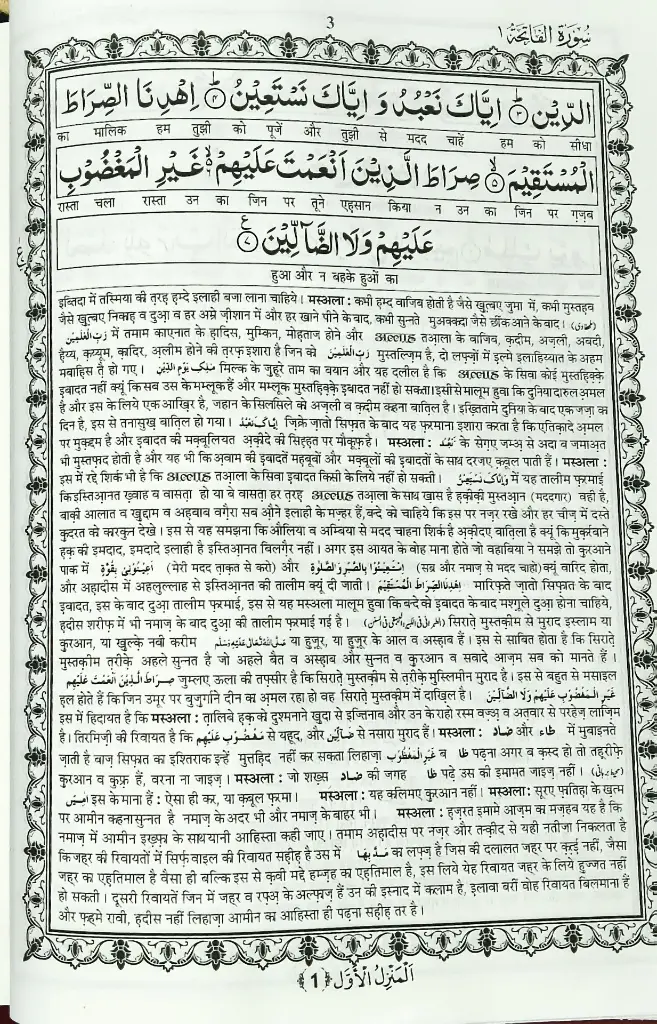 3
سُوْرَةُ الْفَاتِحَة ١
الدِّيْنِ ۳ اِيَّاكَ نَعْبُدُ وَ اِيَّاكَ نَسْتَعِيْنُ ۴ اِهْدِنَا الصِّرَاطَ
का मालिक हम तुझी को पूजें और तुझी से मदद चाहें हम को सीधा
الْمُسْتَقِيْمَ ۵ صِرَاطَ الَّذِيْنَ اَنْعَمْتَ عَلَيْهِمْ ۶ غَيْرِ الْمَغْضُوْبِ
रास्ता चला रास्ता उन का जिन पर तूने एहसान किया न उन का जिन पर ग़ज़ब
عَلَيْهِمْ وَلَا الضَّآلِّيْنَ ۷
ع
हुआ और न बहके हुओं का
इब्तिदा में तस्मिया की तरह़ ह़म्दे इलाही बजा लाना चाहिये। मस्अला : कभी ह़म्द वाजिब होती है जैसे ख़ुत़्बए जुमा में, कभी मुस्तह़ब
जैसे ख़ुत़्बए निकाह़ व दुआ़ व हर अम्रे ज़ीशान में और हर खाने पीने के बाद, कभी सुन्नते मुअक्कदा जैसे छींक आने के बाद। (طحطاوی)
رَبِّ الْعٰلَمِيْنَ में तमाम काएनात के ह़ादिस, मुम्किन, मोह़ताज होने और अल्लाह तआ़ला के वाजिब, क़दीम, अज़ली, अबदी,
ह़य्य, क़य्यूम, क़ादिर, अ़लीम होने की त़रफ़ इशारा है जिन को رَبِّ الْعٰلَمِيْنَ मुस्तल्ज़िम है, दो लफ़्ज़ों में इल्मे इलाहिय्यात के अहम
मबाह़िस तै हो गए। مٰلِكِ يَوْمِ الدِّيْنِ मिल्क के ज़ुहूरे ताम का बयान और यह दलील है कि अल्लाह के सिवा कोई मुस्तह़िक़्क़े
इ़बादत नहीं क्यूं कि सब उस के मम्लूक हैं और मम्लूक मुस्तह़िक़्क़े इ़बादत नहीं हो सकता। इसी से मालूम हुवा कि दुनिया दारुल अ़मल
है और इस के लिये एक आख़िर है, जहान के सिलसिले को अज़ली व क़दीम कहना बात़िल है। इख़्तितामे दुनिया के बाद एक जज़ा का
दिन है, इस से तनासुख़ बात़िल हो गया। اِيَّاكَ نَعْبُدُ ज़िक्रे ज़ातो सिफ़ात के बाद यह फ़रमाना इशारा करता है कि एतिक़ाद अ़मल
पर मुक़द्दम है और इ़बादत की मक़्बूलियत अ़क़ीदे की सिह़्ह़त पर मौक़ूफ़ है। मस्अला : نَعْبُدُ के सेग़ए जम्अ़ से अदा व जमाअ़त
भी मुस्तफ़ाद होती है और यह भी कि अ़वाम की इ़बादतें मह़बूबों और मक़्बूलों की इ़बादतों के साथ दरजए क़बूल पाती हैं। मस्अला :
इस में रद्दे शिर्क भी है कि अल्लाह तआ़ला के सिवा इ़बादत किसी के लिये नहीं हो सकती। وَاِيَّاكَ نَسْتَعِيْنُ में यह तालीम फ़रमाई
कि इस्तिआ़नत ख़्वाह ब वासत़ा हो या बे वासत़ा हर तरह़ अल्लाह तआ़ला के साथ ख़ास है ह़क़ीक़ी मुस्तआ़न (मददगार) वही है,
बाक़ी आलात व ख़ुद्दाम व अह़बाब वग़ैरा सब औ़ने इलाही के मज़्हर हैं, बन्दे को चाहिये कि इस पर नज़र रखे और हर चीज़ में दस्ते
क़ुदरत को कारकुन देखे। इस से यह समझना कि औलिया व अम्बिया से मदद चाहना शिर्क है अ़क़ीदए बात़िला है क्यूं कि मुक़र्रबाने
ह़क़ की इमदाद, इमदादे इलाही है इस्तिआ़नत बिलग़ैर नहीं। अगर इस आयत के वोह माना होते जो वहाबिया ने समझे तो क़ुरआने
पाक में اَعِيْنُوْنِيْ بِقُوَّةٍ (मेरी मदद त़ाक़त से करो) और اِسْتَعِيْنُوْا بِالصَّبْرِ وَالصَّلٰوةِ (सब्र और नमाज़ से मदद चाहो) क्यूं वारिद होता,
और अह़ादीस में अहलुल्लाह से इस्तिआ़नत की तालीम क्यूं दी जाती। اِهْدِنَا الصِّرَاطَ الْمُسْتَقِيْمَ मारिफ़ते ज़ातो सिफ़ात के बाद
इ़बादत, इस के बाद दुआ़ तालीम फ़रमाई, इस से यह मस्अला मालूम हुवा कि बन्दे को इ़बादत के बाद मश्ग़ूले दुआ़ होना चाहिये,
ह़दीस शरीफ़ में भी नमाज़ के बाद दुआ़ की तालीम फ़रमाई गई है। सिराते़ मुस्तक़ीम से मुराद इस्लाम या
क़ुरआन, या ख़ुल्क़े नबी करीम صَلَّى اللهُ تَعَالٰى عَلَيْهِ وَسَلَّم या ह़ुज़ूर, या ह़ुज़ूर के आल व अस्ह़ाब हैं। इस से साबित होता है कि सिराते़
मुस्तक़ीम त़रीक़े अहले सुन्नत है जो अहले बैत व अस्ह़ाब और सुन्नत व क़ुरआन व सवादे आज़म सब को मानते हैं।
صِرَاطَ الَّذِيْنَ اَنْعَمْتَ عَلَيْهِمْ जुम्लए ऊला की तफ़्सीर है कि सिराते़ मुस्तक़ीम से त़रीक़े मुस्लिमीन मुराद है। इस से बहुत से मसाइल
ह़ल होते हैं कि जिन उमूर पर बुज़ुर्गाने दीन का अ़मल रहा हो वह सिराते़ मुस्तक़ीम में दाख़िल है। غَيْرِ الْمَغْضُوْبِ عَلَيْهِمْ وَلَا الضَّآلِّيْنَ
इस में हिदायत है कि मस्अला : त़ालिबे ह़क़ को दुश्मनाने ख़ुदा से इज्तिनाब और उन के राहो रस्म वज़्अ़ व अत़वार से परहेज़ लाज़िम
है। तिरमिज़ी की रिवायत है कि مَغْضُوْبِ عَلَيْهِمْ से यहूद, और ضَآلِّيْنَ से नसारा मुराद हैं। मस्अला : ضاد और ظاء में मुबाइनते
जा़ती है बाज़ सिफ़ात का इश्तिराक इन्हें मुत्तह़िद नहीं कर सकता लिहाज़ा غَيْرِ الْمَغْظُوْب ब ظا पढ़ना अगर ब क़स्द हो तो तह़रीफ़े
क़ुरआन व कुफ़्र है, वरना ना जाइज़। मस्अला : जो शख़्स ضاد की जगह ظا पढ़े उस की इमामत जाइज़ नहीं।
اٰمِيْن इस के माना हैं : ऐसा ही कर, या क़बूल फ़रमा। मस्अला : यह कलिमए क़ुरआन नहीं। मस्अला : सूरए फ़ातिह़ा के ख़त्म
पर आमीन कहना सुन्नत है नमाज़ के अन्दर भी और नमाज़ के बाहर भी। मस्अला : ह़ज़रत इमामे आज़म का मज़हब यह है कि
नमाज़ में आमीन इख़्फ़ा के साथ यानी आहिस्ता कही जाए। तमाम अह़ादीस पर नज़र और तन्क़ीद से यही नतीजा निकलता है
कि जहर की रिवायतों में सिर्फ़ वाइल की रिवायत सह़ीह़ है उस में مَدَّ بِهَا का लफ़्ज़ है जिस की दलालत जहर पर क़त़ई नहीं, जैसा
जहर का एह़तिमाल है वैसा ही बल्कि इस से क़वी मद्दे हम्ज़ह का एह़तिमाल है, इस लिये येह रिवायत जहर के लिये ह़ुज्जत नहीं
हो सकती। दूसरी रिवायतें जिन में जहर व रफ़्अ़ के अल्फ़ाज़ हैं उन की इस्नाद में कलाम है, इलावा बरीं वोह रिवायत बिलमाना हैं
और फ़हमे रावी, ह़दीस नहीं लिहाज़ा आमीन का आहिस्ता ही पढ़ना सह़ीह़ तर है।
اَلْمَنْزِلُ الْاَوَّلُ ﴿1﴾